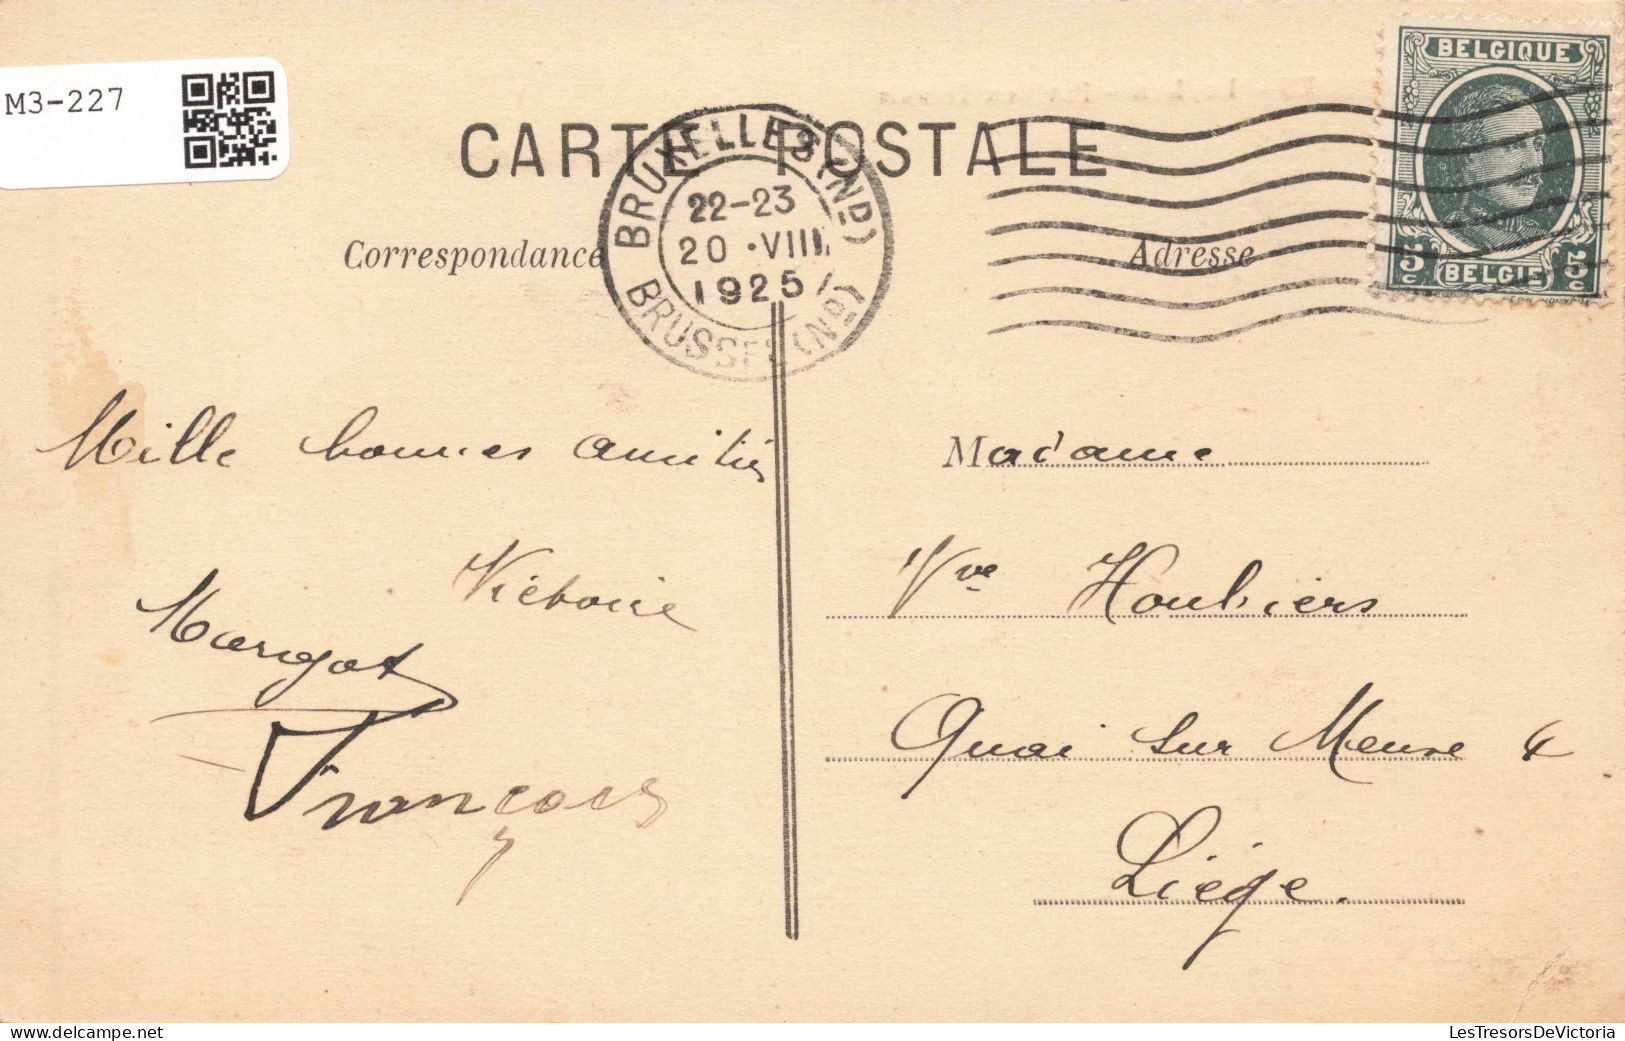 M3-227
CARTE POSTALE
BELGIQUE
BRUXELLES (Nd)
22-23
20 · VIII
1925
BRUSSEL (Nd)
Correspondance
Adresse
5c BELGIE 5c
Mille bonnes amitiés
Madame
Victoire
Vve Houbiers
Margot
François
Quai sur Meuse 4
Liége.
LesTresorsDeVictoria